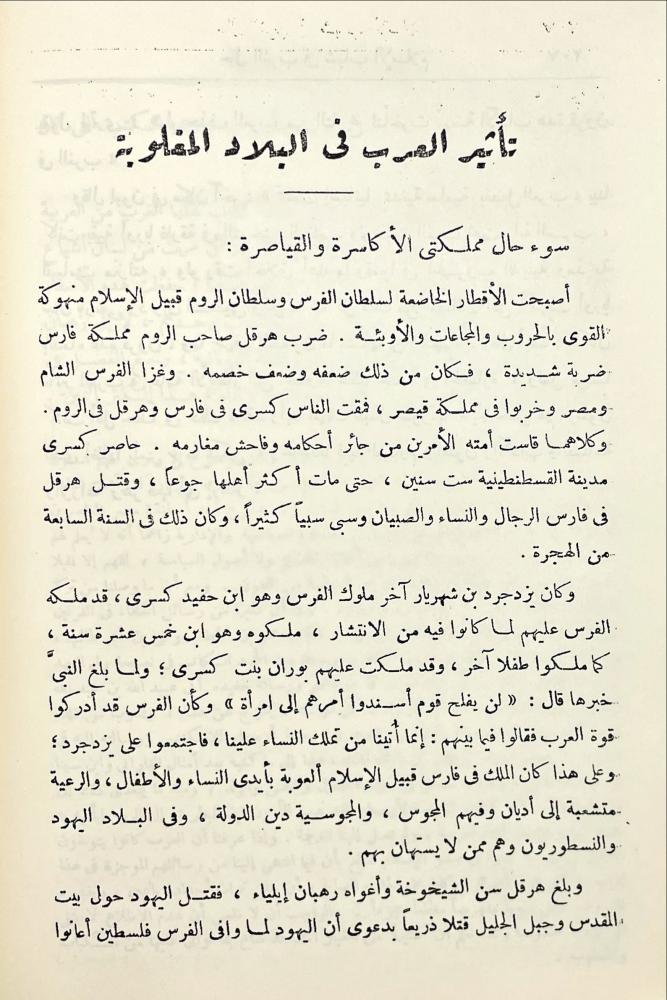 تأثير العرب فى البلاد المغلوبة
سوء حال مملكتى الأكاسرة والقياصرة :
أصبحت الأقطار الخاضعة لسلطان الفرس وسلطان الروم قبيل الإسلام منهوكة
القوى بالحروب والمجاعات والأوبئة . ضرب هرقل صاحب الروم مملكة فارس
ضربة شديدة ، فكان من ذلك ضعفه وضعف خصمه . وغزا الفرس الشام
ومصر وخربوا فى مملكة قيصر ، فمقت الناس كسرى فى فارس وهرقل فى الروم .
وكلاهما قاست أمته الأمرين من جائر أحكامه وفاحش مغارمه . حاصر كسرى
مدينة القسطنطينية ست سنين ، حتى مات أكثر أهلها جوعاً ، وقتل هرقل
فى فارس الرجال والنساء والصبيان وسبى سبياً كثيراً ، وكان ذلك فى السنة السابعة
من الهجرة .
وكان يزدجرد بن شهريار آخر ملوك الفرس وهو ابن حفيد كسرى ، قد ملكه
الفرس عليهم لما كانوا فيه من الانتشار ، ملكوه وهو ابن خمس عشرة سنة ،
كما ملكوا طفلا آخر ، وقد ملكت عليهم بوران بنت كسرى ؛ ولما بلغ النبىَّ
خبرها قال : « لن يفلح قوم أسندوا أمرهم إلى امرأة » وكأن الفرس قد أدركوا
قوة العرب فقالوا فيما بينهم : إنما أُتينا من تملك النساء علينا ، فاجتمعوا على يزدجرد ؛
وعلى هذا كان الملك فى فارس قبيل الإسلام ألعوبة بأيدى النساء والأطفال ، والرعية
متشعبة إلى أديان وفيهم المجوس ، والمجوسية دين الدولة ، وفى البلاد اليهود
والنسطوريون وهم ممن لا يستهان بهم .
وبلغ هرقل سن الشيخوخة وأغواه رهبان إيلياء ، فقتل اليهود حولى بيت
المقدس وجبل الجليل قتلا ذريعاً بدعوى أن اليهود لما وافى الفرس فلسطين أعانوا